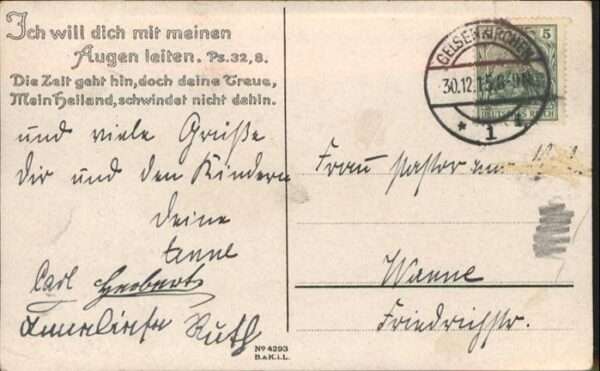 Ich will dich mit meinen
Augen leiten. Ps. 32, 8.
Die Zeit geht hin, doch deine Treue,
Mein Heiland, schwindet nicht dahin.
und viele Grüße
Dir und den Kindern
Deine
Carl Herbert
Ruth
GELSENKIRCHEN
30.12.15.
* 1
5
DEUTSCHES REICH
Frau Pastor
Wanne
Friedrichstr.
No 4293
B.a.K.i.L.